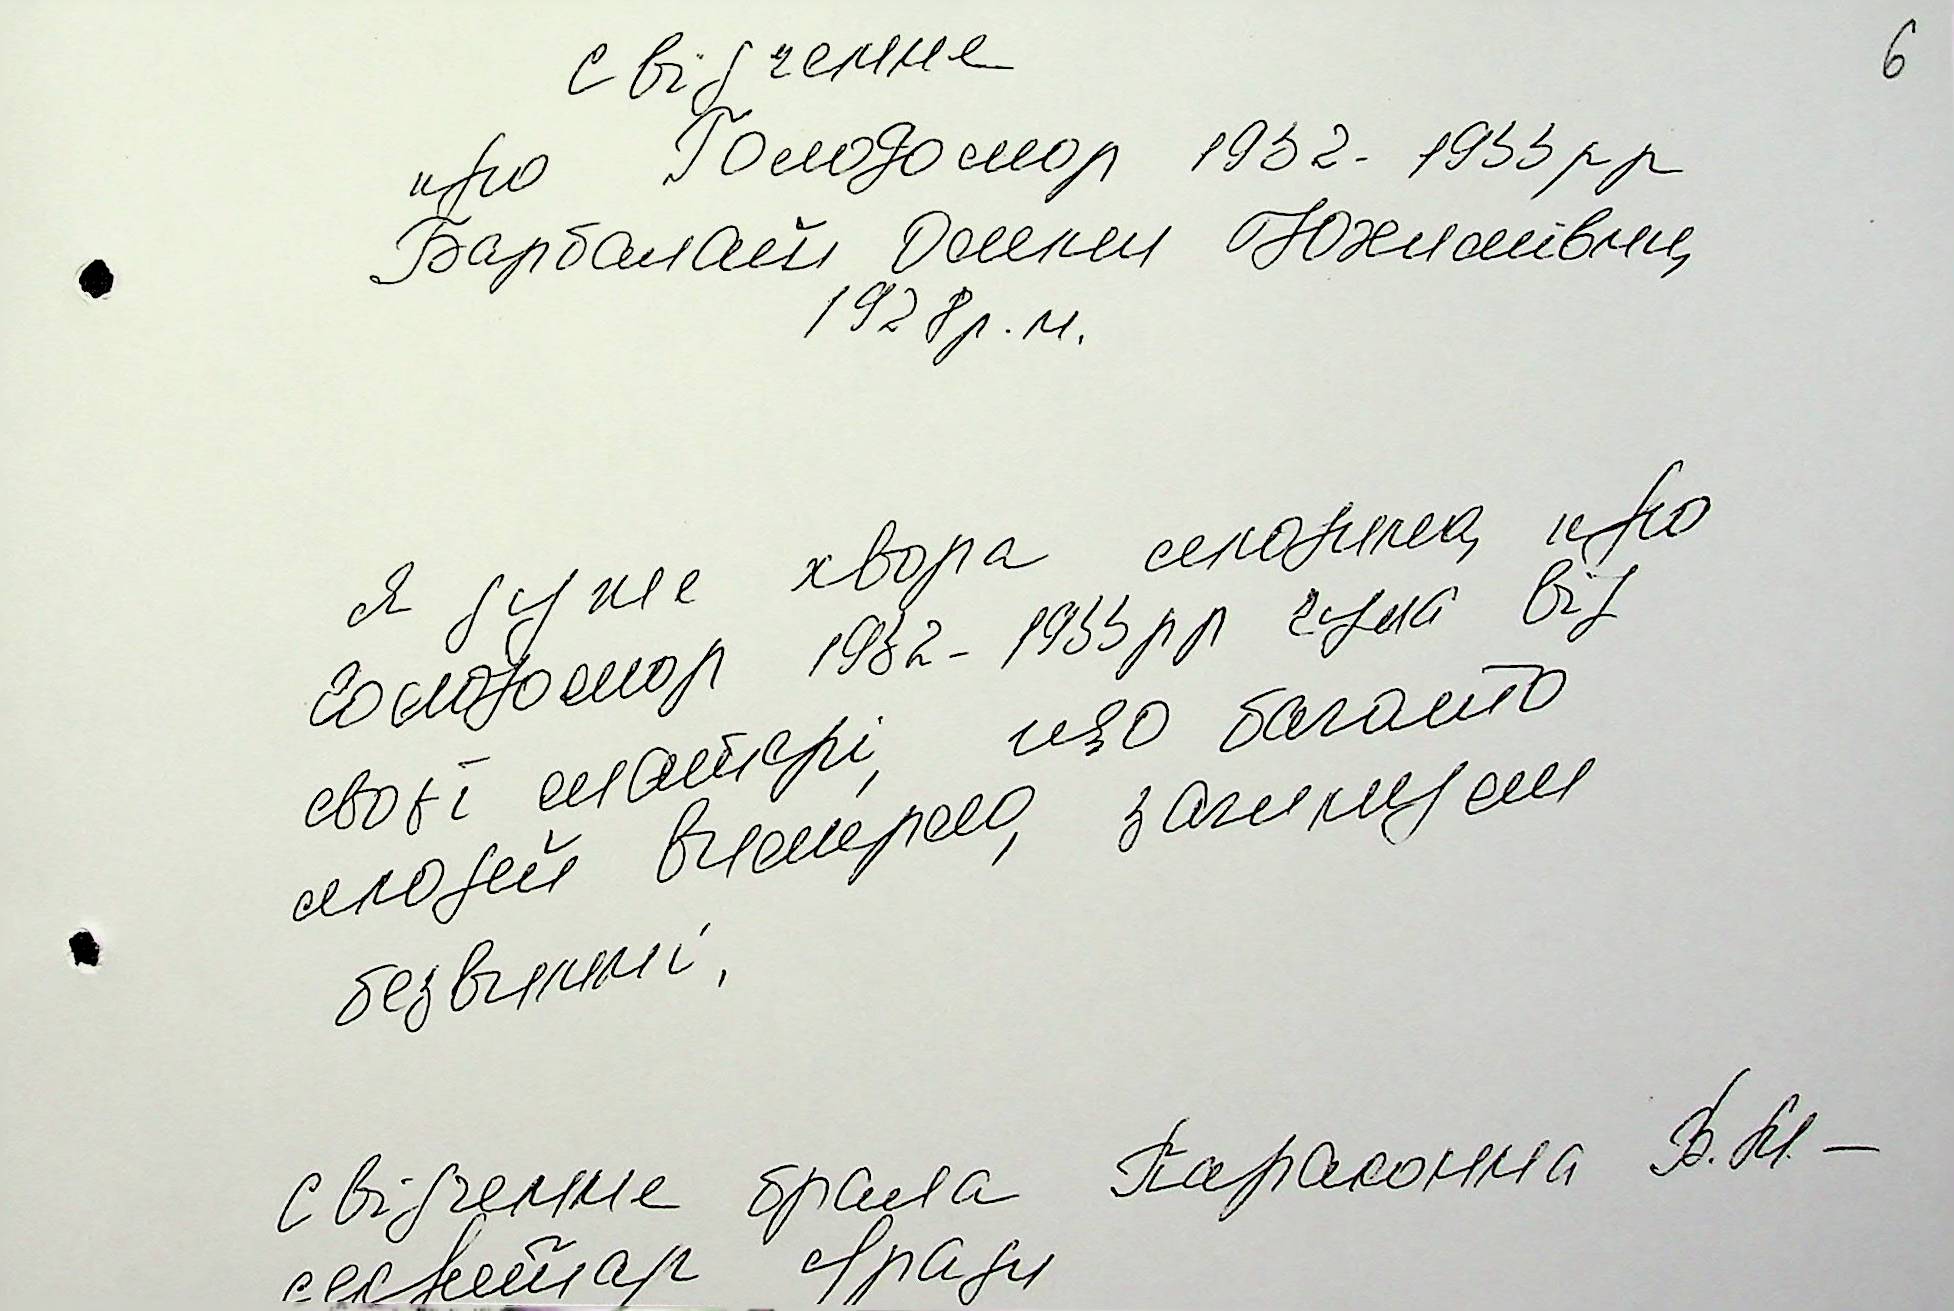 6
свідчення
про Голодомор 1932-1933рр
Барбалат Олени Юхимівни,
1928р.н.
Я дуже хвора людина, про
голодомор 1932-1933рр чула від
своєї матері, що багато
людей вимерло, загинули
безвинні.
свідчення брала Параконна В.М. –
секретар с/ради